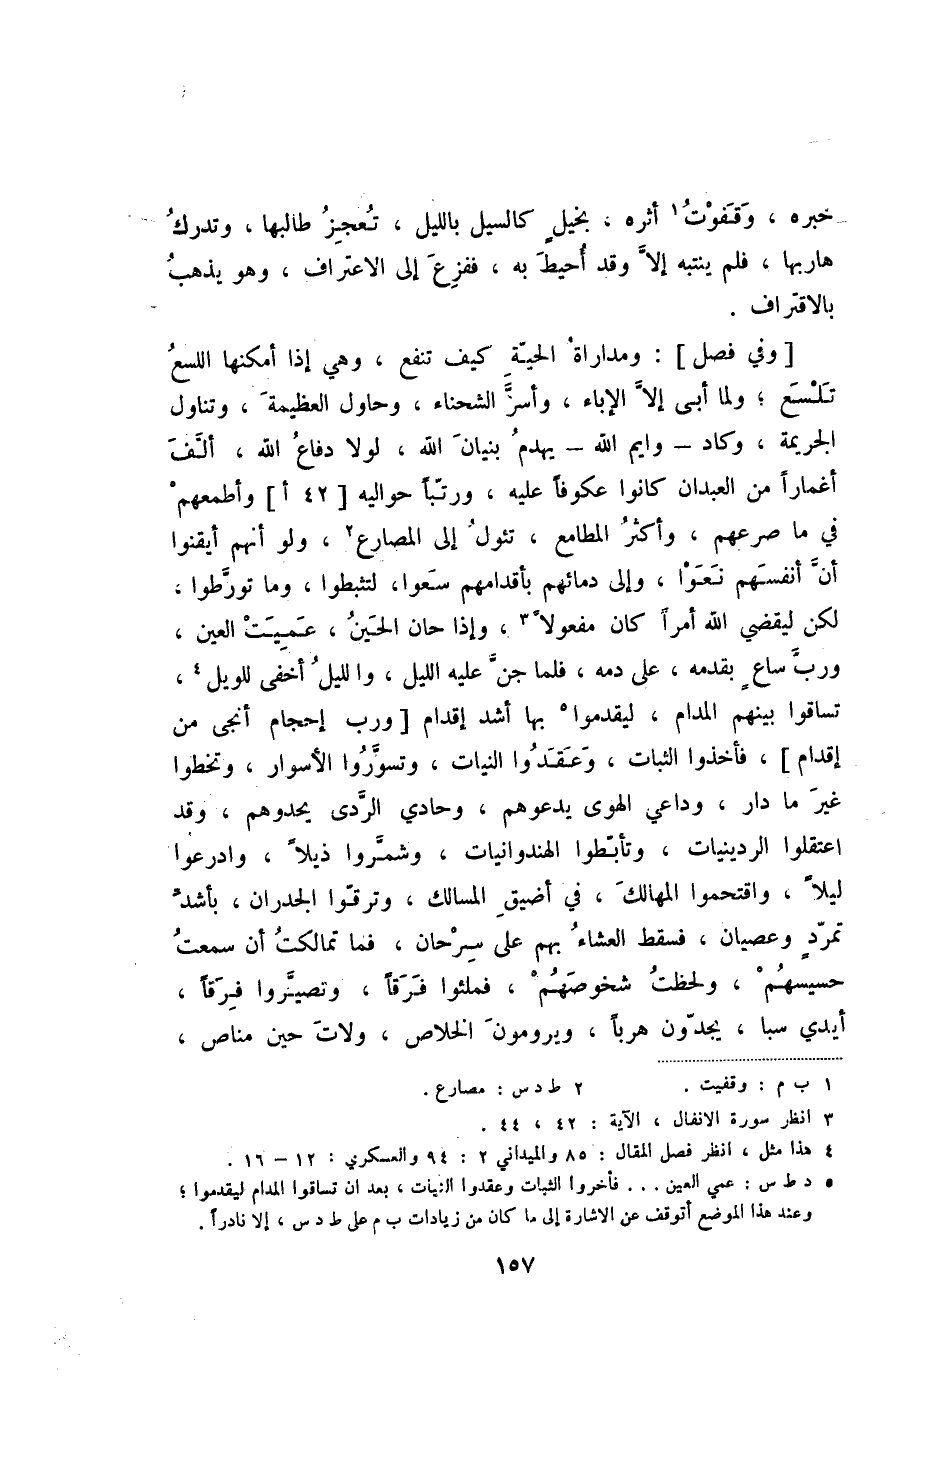 خبره ، وَقَفَوْتُ١ أثره ، بخيلٍ كالسيل بالليل ، تُعجِزُ طالبها ، وتدركُ
هاربها ، فلم ينتبه إلاَّ وقد أُحيطَ به ، ففزِعَ إلى الاعتراف ، وهو يذهبُ
بالاقتراف .
[ وفي فصل ] : ومداراةُ الحيّةِ كيف تنفع ، وهي إذا أمكنها اللسعُ
تَلْسَع ؛ ولما أبى إلاَّ الإباء ، وأسرَّ الشحناء ، وحاول العظيمةَ ، وتناول
الجريمة ، وكاد – وايم الله – يهدمُ بنيانَ الله ، لولا دفاعُ الله ، ألَّفَ
أغماراً من العبدان كانوا عكوفاً عليه ، ورتّباً حواليه [ ٤٢ أ ] وأطمعهمْ
في ما صرعهم ، وأكثرُ المطامع ، تئولُ إلى المصارع٢ ، ولو أنهم أيقنوا
أنَّ أنفسَهم نَعَوْا ، وإلى دمائهم بأقدامهم سَعوا، لتثبطوا ، وما تورَّطوا ،
لكن ليقضي الله أمراً كان مفعولاً٣ ، وإذا حان الحَينُ ، عَمِيَتْ العين ،
وربَّ ساعٍ بقدمه ، على دمه ، فلما جنَّ عليه الليل ، والليلُ أخفى للويل٤ ،
تساقوا بينهم المدام ، ليقدموا٥ بها أشد إقدام [ ورب إحجام أنجى من
إقدام ] ، فأخذوا الثبات ، وَعَقَدُوا النيات ، وتسوَّرُوا الأسوار ، وتخطوا
غيرَ ما دار ، وداعي الهوى يدعوهم ، وحادي الرَّدى يحدوهم ، وقد
اعتقلوا الردينيات ، وتأبّطوا الهندوانيات ، وشمَّروا ذيلاً ، وادرعوا
ليلاً ، واقتحموا المهالكَ ، في أضيقِ المسالك ، وترقّوا الجدران ، بأشدّ
تمرّدٍ وعصيان ، فسقط العشاءُ بهم على سِرْحان ، فما تمالكتُ أن سمعتُ
حسيسهُمْ ، ولحظتُ شخوصَهُمْ ، فملئوا فَرَقاً ، وتصيَّروا فِرَقاً ،
أيدي سبا ، يجدّون هرباً ، ويرومونَ الخلاص ، ولاتَ حين مناص ،
١ ب م : وقفيت . ٢ ط د س : مصارع .
٣ انظر سورة الانفال ، الآية : ٤٢ ، ٤٤ .
٤ هذا مثل ، انظر فصل المقال : ٨٥ والميداني ٢ : ٩٤ والعسكري : ١٢ – ١٦ .
٥ د ط س : عمي العين ... فأخروا الثبات وعقدوا النيات ، بعد ان تساقوا المدام ليقدموا ؛
وعند هذا الموضع أتوقف عن الاشارة إلى ما كان من زيادات ب م على ط د س ، إلا نادراً .
١٥٧